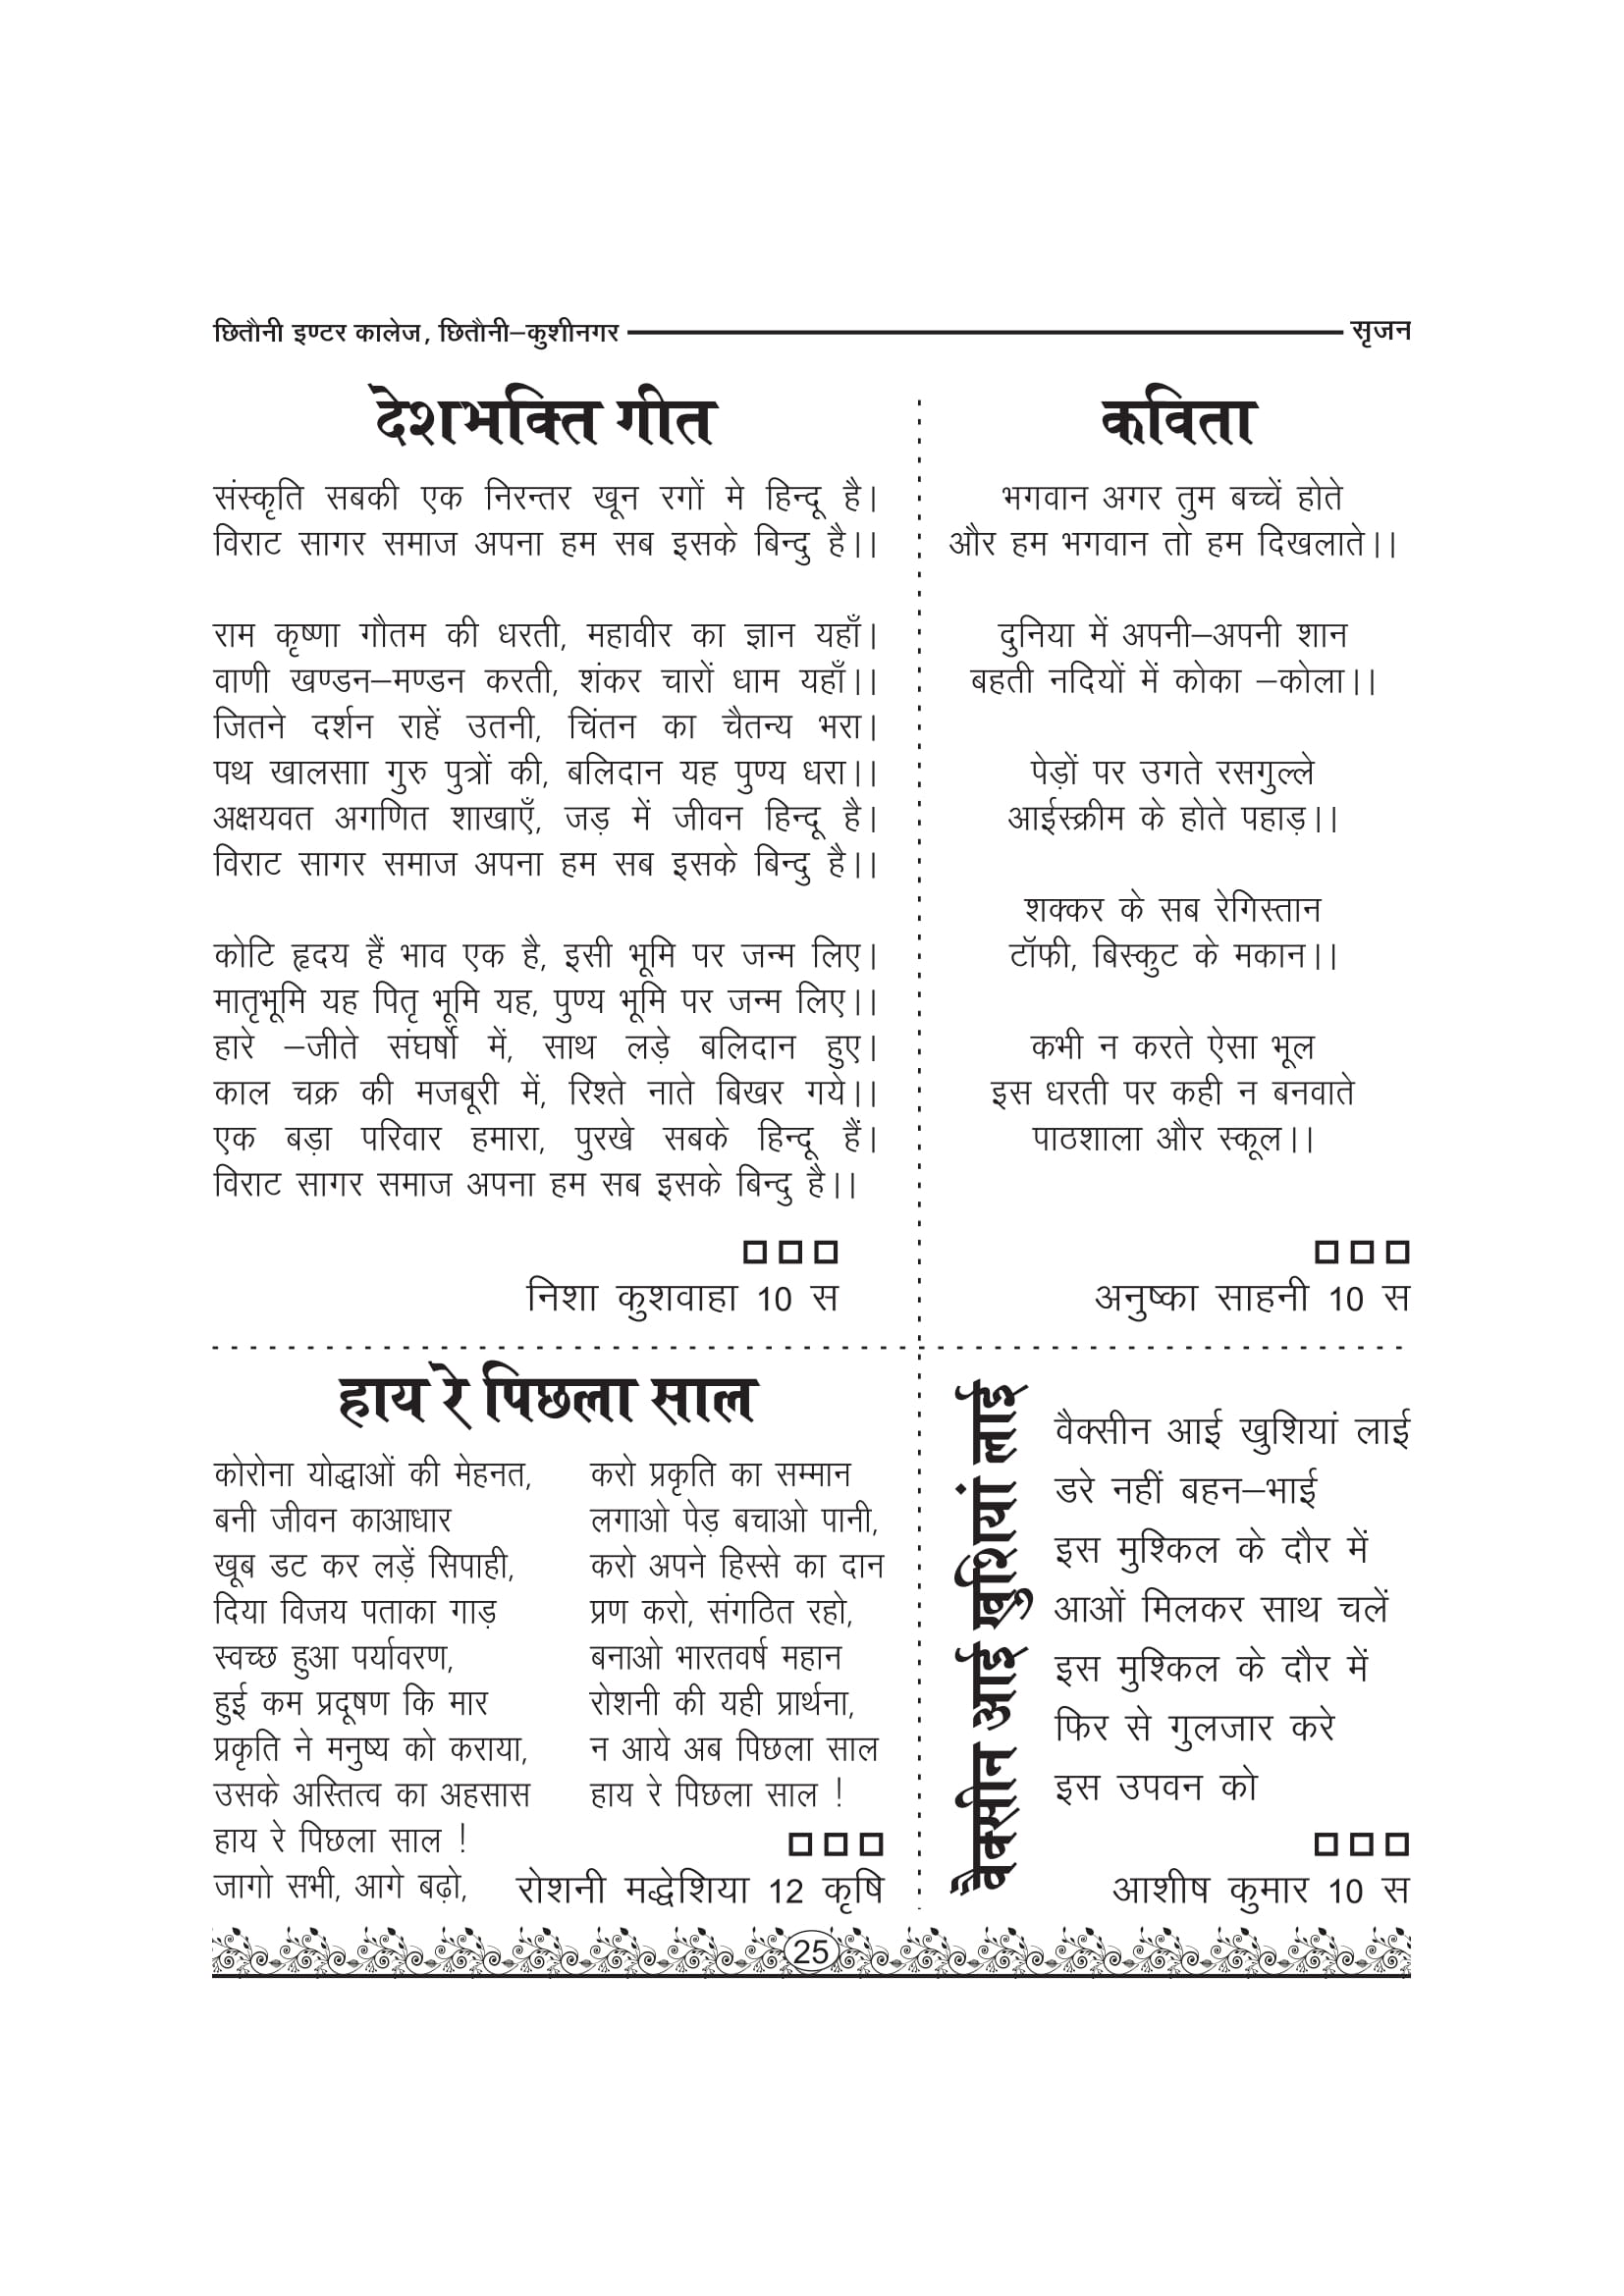 छितौनी इण्टर कालेज, छितौनी–कुशीनगर
सृजन
देशभक्ति गीत
संस्कृति सबकी एक निरन्तर खून रगों मे हिन्दू है।
विराट सागर समाज अपना हम सब इसके बिन्दु है।।
राम कृष्णा गौतम की धरती, महावीर का ज्ञान यहाँ।
वाणी खण्डन–मण्डन करती, शंकर चारों धाम यहाँ।।
जितने दर्शन राहें उतनी, चिंतन का चैतन्य भरा।
पथ खालसाा गुरु पुत्रों की, बलिदान यह पुण्य धरा।।
अक्षयवत अगणित शाखाएँ, जड़ में जीवन हिन्दू है।
विराट सागर समाज अपना हम सब इसके बिन्दु है।।
कोटि हृदय हैं भाव एक है, इसी भूमि पर जन्म लिए।
मातृभूमि यह पितृ भूमि यह, पुण्य भूमि पर जन्म लिए।।
हारे –जीते संघर्षो में, साथ लड़े बलिदान हुए।
काल चक्र की मजबूरी में, रिश्ते नाते बिखर गये।।
एक बड़ा परिवार हमारा, पुरखे सबके हिन्दू हैं।
विराट सागर समाज अपना हम सब इसके बिन्दु है।।
निशा कुशवाहा 10 स
कविता
भगवान अगर तुम बच्चें होते
और हम भगवान तो हम दिखलाते।।
दुनिया में अपनी–अपनी शान
बहती नदियों में कोका –कोला।।
पेड़ों पर उगते रसगुल्ले
आईस्क्रीम के होते पहाड़।।
शक्कर के सब रेगिस्तान
टॉफी, बिस्कुट के मकान।।
कभी न करते ऐसा भूल
इस धरती पर कही न बनवाते
पाठशाला और स्कूल।।
अनुष्का साहनी 10 स
हाय रे पिछला साल
कोरोना योद्धाओं की मेहनत,
बनी जीवन काआधार
खूब डट कर लड़ें सिपाही,
दिया विजय पताका गाड़
स्वच्छ हुआ पर्यावरण,
हुई कम प्रदूषण कि मार
प्रकृति ने मनुष्य को कराया,
उसके अस्तित्व का अहसास
हाय रे पिछला साल !
जागो सभी, आगे बढ़ो,
करो प्रकृति का सम्मान
लगाओ पेड़ बचाओ पानी,
करो अपने हिस्से का दान
प्रण करो, संगठित रहो,
बनाओ भारतवर्ष महान
रोशनी की यही प्रार्थना,
न आये अब पिछला साल
हाय रे पिछला साल !
रोशनी मद्धेशिया 12 कृषि
वैक्सीन आई खुशियां लाई
वैक्सीन आई खुशियां लाई
डरे नहीं बहन–भाई
इस मुश्किल के दौर में
आओं मिलकर साथ चलें
इस मुश्किल के दौर में
फिर से गुलजार करे
इस उपवन को
आशीष कुमार 10 स
25